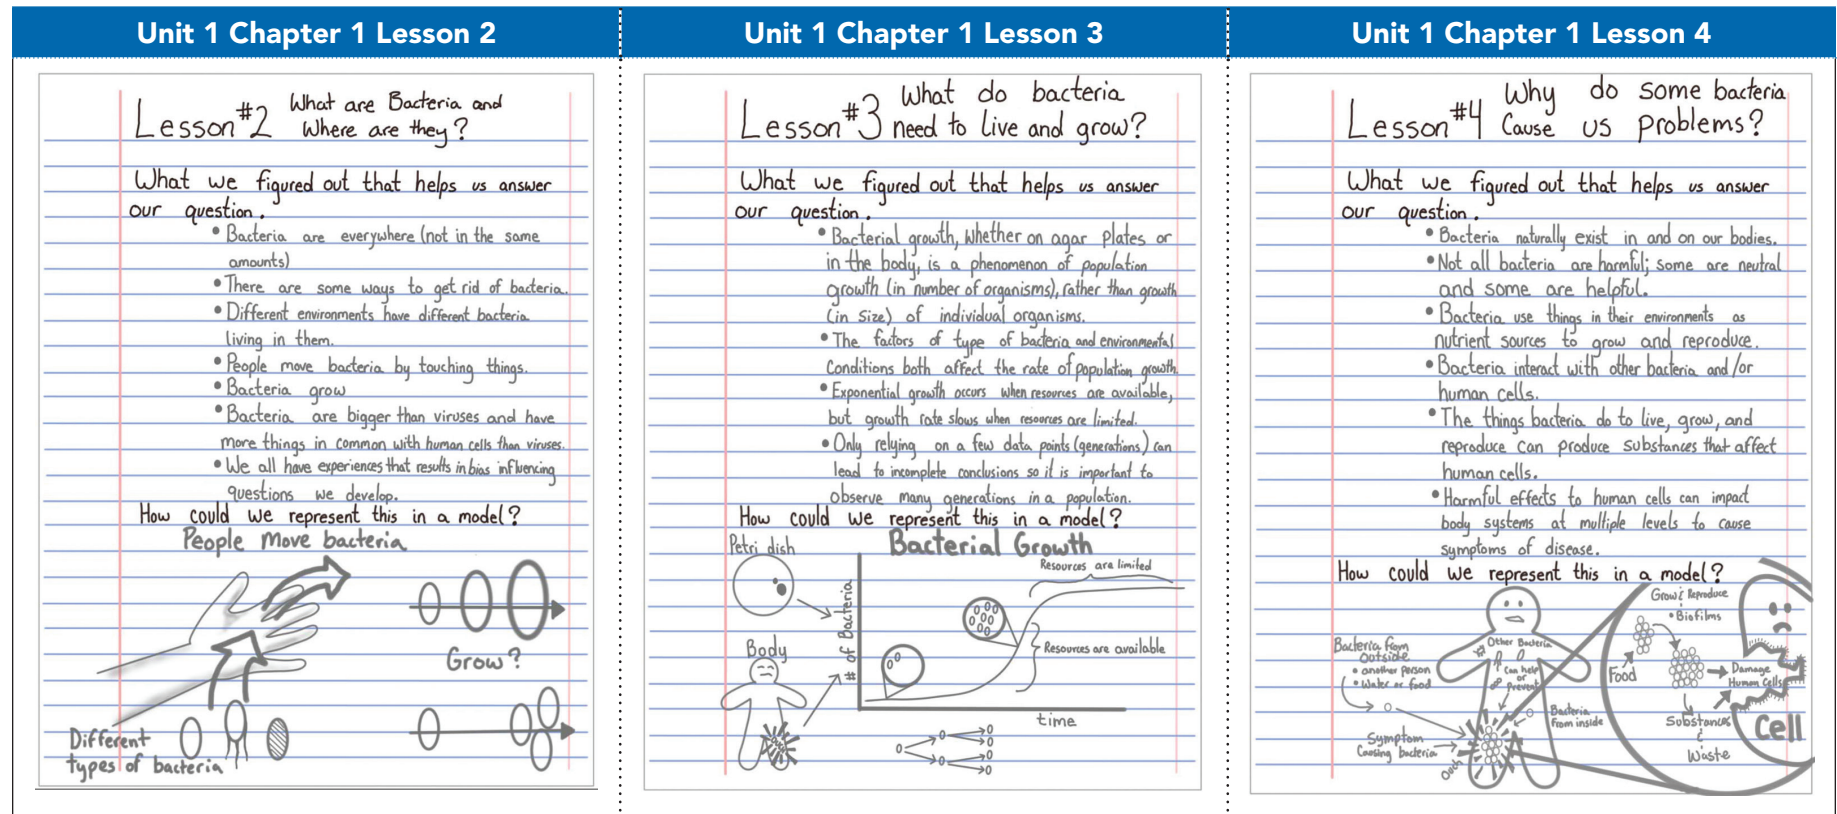 Unit 1 Chapter 1 Lesson 2
Lesson #2 What are Bacteria and
Where are they?
What we figured out that helps us answer
our question.
• Bacteria are everywhere (not in the same
amounts)
• There are some ways to get rid of bacteria.
• Different environments have different bacteria
living in them.
• People move bacteria by touching things.
• Bacteria grow
• Bacteria are bigger than viruses and have
more things in common with human cells than viruses.
• We all have experiences that results in bias influencing
questions we develop.
How could we represent this in a model?
People Move bacteria
Grow?
Different
types of bacteria
Unit 1 Chapter 1 Lesson 3
Lesson #3 What do bacteria
need to live and grow?
What we figured out that helps us answer
our question.
• Bacterial growth, whether on agar plates or
in the body, is a phenomenon of population
growth (in number of organisms), rather than growth
(in size) of individual organisms.
• The factors of type of bacteria and environmental
Conditions both affect the rate of population growth.
• Exponential growth occurs when resources are available,
but growth rate slows when resources are limited.
• Only relying on a few data points (generations) can
lead to incomplete conclusions so it is important to
observe many generations in a population.
How could we represent this in a model?
Petri dish
Bacterial Growth
Resources are limited
# of Bacteria
Body
Resources are available
time
Unit 1 Chapter 1 Lesson 4
Lesson #4 Why do some bacteria
Cause us problems?
What we figured out that helps us answer
our question.
• Bacteria naturally exist in and on our bodies.
• Not all bacteria are harmful; some are neutral
and some are helpful.
• Bacteria use things in their environments as
nutrient sources to grow and reproduce.
• Bacteria interact with other bacteria and/or
human cells.
• The things bacteria do to live, grow, and
reproduce can produce substances that affect
human cells.
• Harmful effects to human cells can impact
body systems at multiple levels to cause
symptoms of disease.
How could we represent this in a model?
Grow & Reproduce
• Biofilms
Bacteria from
outside
• another person
• Water or food
Other Bacteria
Can help
or
Prevent
Food
Damage
Human Cells
Bacteria
from inside
Substances
&
Waste
Cell
Symptom
Causing bacteria
Ouch